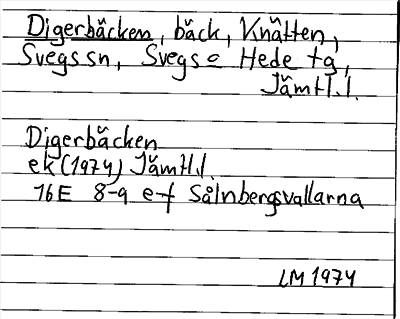 Digerbäcken, bäck, Knätten,
Svegssn, Svegs o Hede tg,
Jämtl.l.
Digerbäcken
ek (1974) Jämtl.l.
16E 8-9 e-f Sålnbergsvallarna
LM 1974